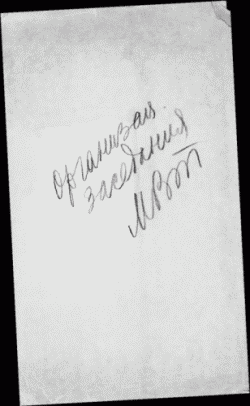 организац.
заседания
МВТ